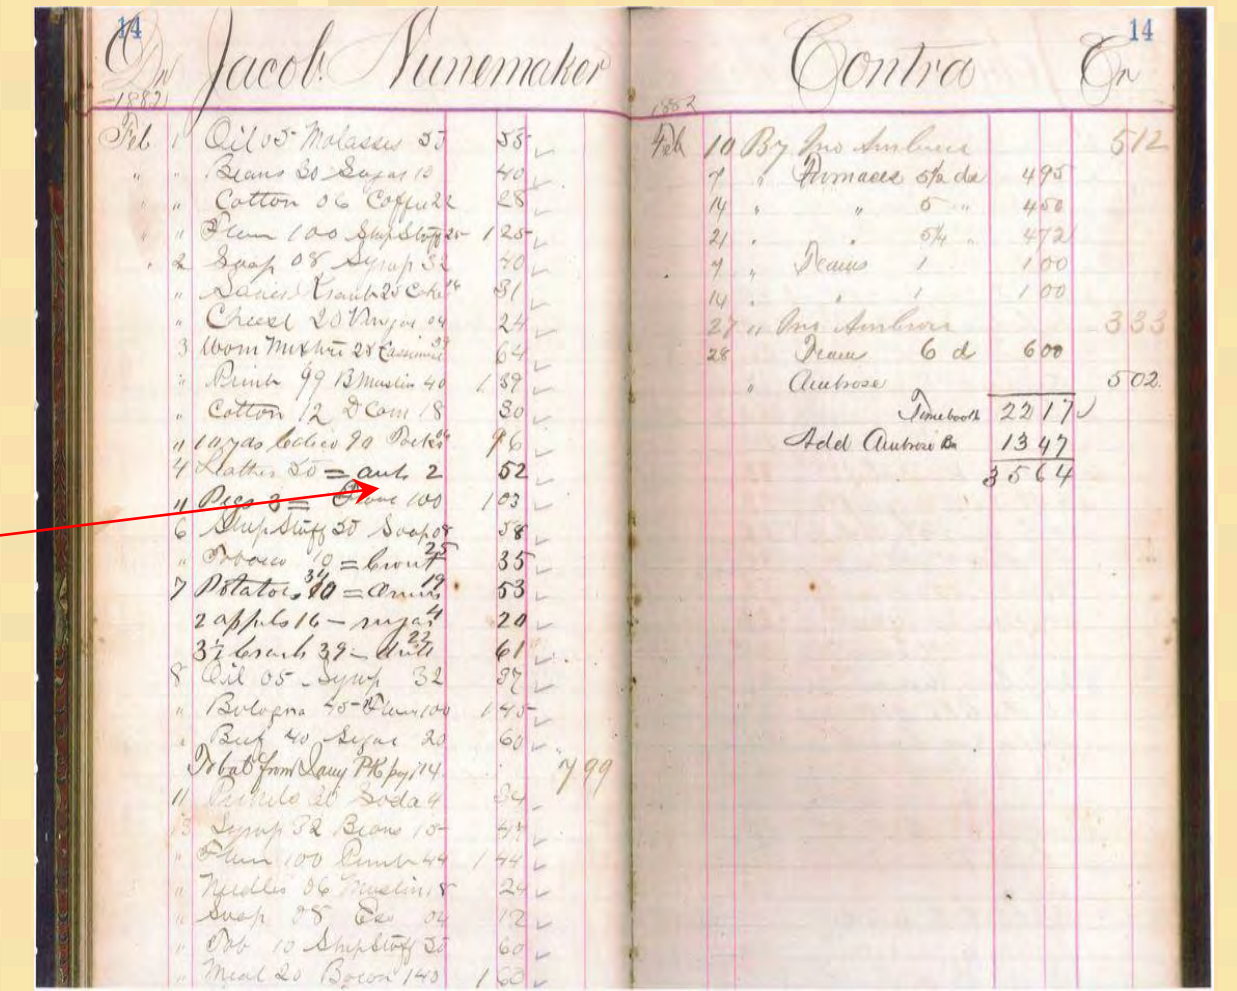 14
Dr Jacob Nunemaker
1882
Feb 1 Oil 05 Molasses 50 55
" " Beans 30 Sugar 10 40
" " Cotton 06 Coffee 22 28
" " Flour 100 Ship Stuff 25 125
" 2 Soap 08 Syrup 32 40
" 31
" Cheese 20 04 24
3 Worm Mixture 25 64
" 99 B Muslin 40 139
" Cotton 12 D Corn 18 30
" 10 yds Calico 90 96
4 Leather 50 = 2 52
" Pegs 3 = Flour 100 103
6 Ship Stuff 50 Soap 08 58
" Tobacco 10 = 25 35
7 Potatoes = 19 53
2 apples 16 – sugar 4 20
39 – 22 61
8 Oil 05 – Syrup 32 37
" Bologna 45 – Flour 100 145
" Beef 40 Sugar 20 60
To bal from 14 799
11 Soda 4
13 Syrup 32 Beans
" Flour 100 44 144
" Needles 06 Muslin 18 24
" Soap 08 04 12
" Tob 10 Ship Stuff 50 60
" Meal 20 Bacon 140 160
14
Contra Cr
1882
Feb 10 By Jno Ambrose 512
7 " Furnaces 5½ ds 495
14 " " 5 " 450
21 " " 5¼ " 472
7 " Teams 1 100
14 " " 1 100
27 " Jno Ambrose 333
28 Teams 6 d 600
" Ambrose 502
Timebook 2217
Add Ambrose 1347
3564